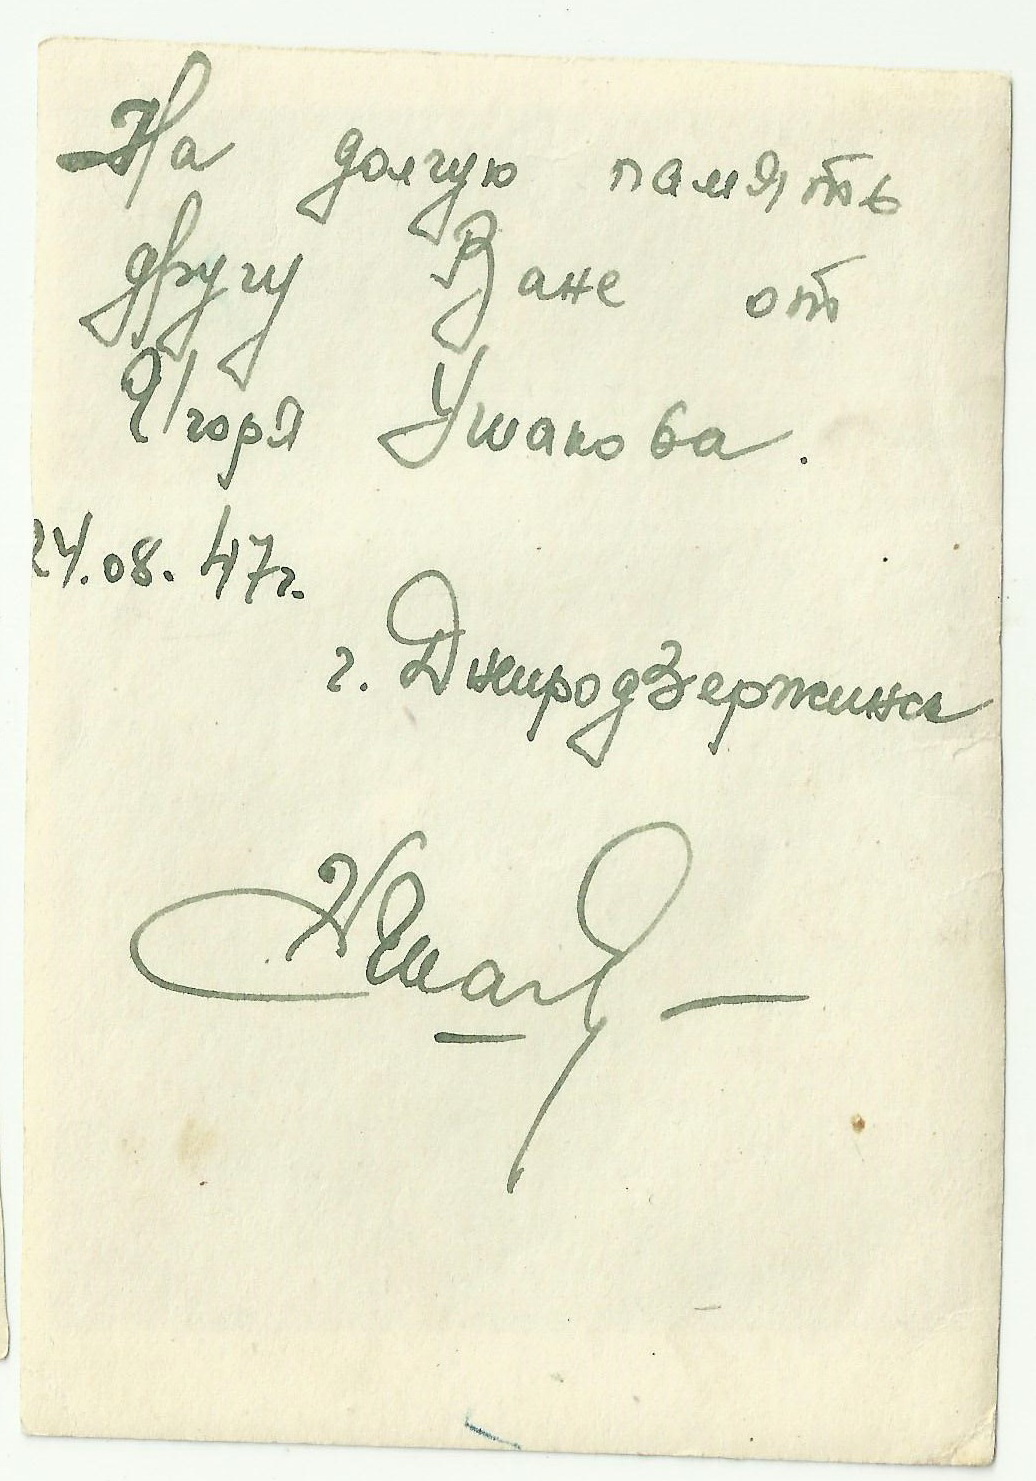 На долгую память
другу Ване от
Игоря Ушакова.
24.08.47г.
г. Днепродзержинск